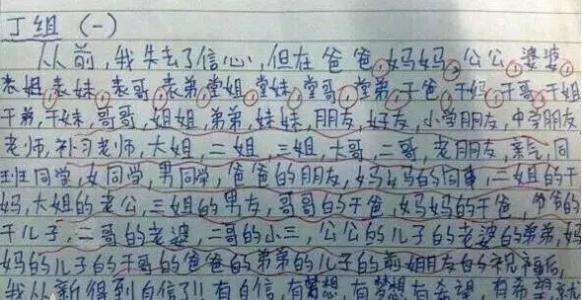 丁组 (一)
从前,我失去了信心,但在爸爸,妈妈,公公,婆婆,
表姐,表妹,表哥,表弟,堂姐,堂妹,堂哥,堂弟,干爸,干妈,干哥,干姐
干弟,干妹,哥哥,姐姐,弟弟,妹妹,朋友,好友,小学朋友,中学朋友
老师,补习老师,大姐,二姐,三姐,大哥,二哥,老朋友,亲气,同
班同学,女同学,男同学,爸爸的朋友,妈妈的同事,二姐的干
妈,大姐的老公,三姐的男友,哥哥的干爸,妈妈的干爸,爷爷的
干儿子,二哥的老婆,二哥的小三,公公的儿子的老婆的弟弟,妈
妈的儿子的干哥的爸爸的弟弟的儿子的前姐朋友的祝福后,
我从新得到自信了!!有自信,有梦想,有梦想有希望,有希望